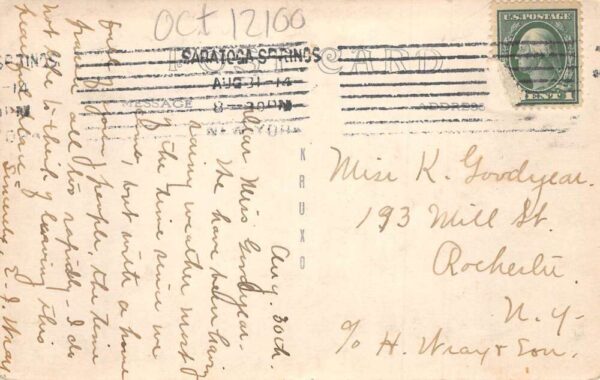 Oct 12100
U.S. POSTAGE
1 CENT 1
SARATOGA SPRINGS
AUG 31 14
8-30PM
NEW YORK
POST CARD
MESSAGE
ADDRESS
KRUXO
Aug. 30th.
Dear Miss Goodyear-
We have been having
rainy weather most
of the time since we
came, but with a home
full of young people, the time
passes all too rapidly. I do
not like to think of leaving this
beautiful place.
Sincerely, E. J. Wray
Miss K. Goodyear.
193 Mill St.
Rochester.
N.Y-
c/o H. Wray & Son.